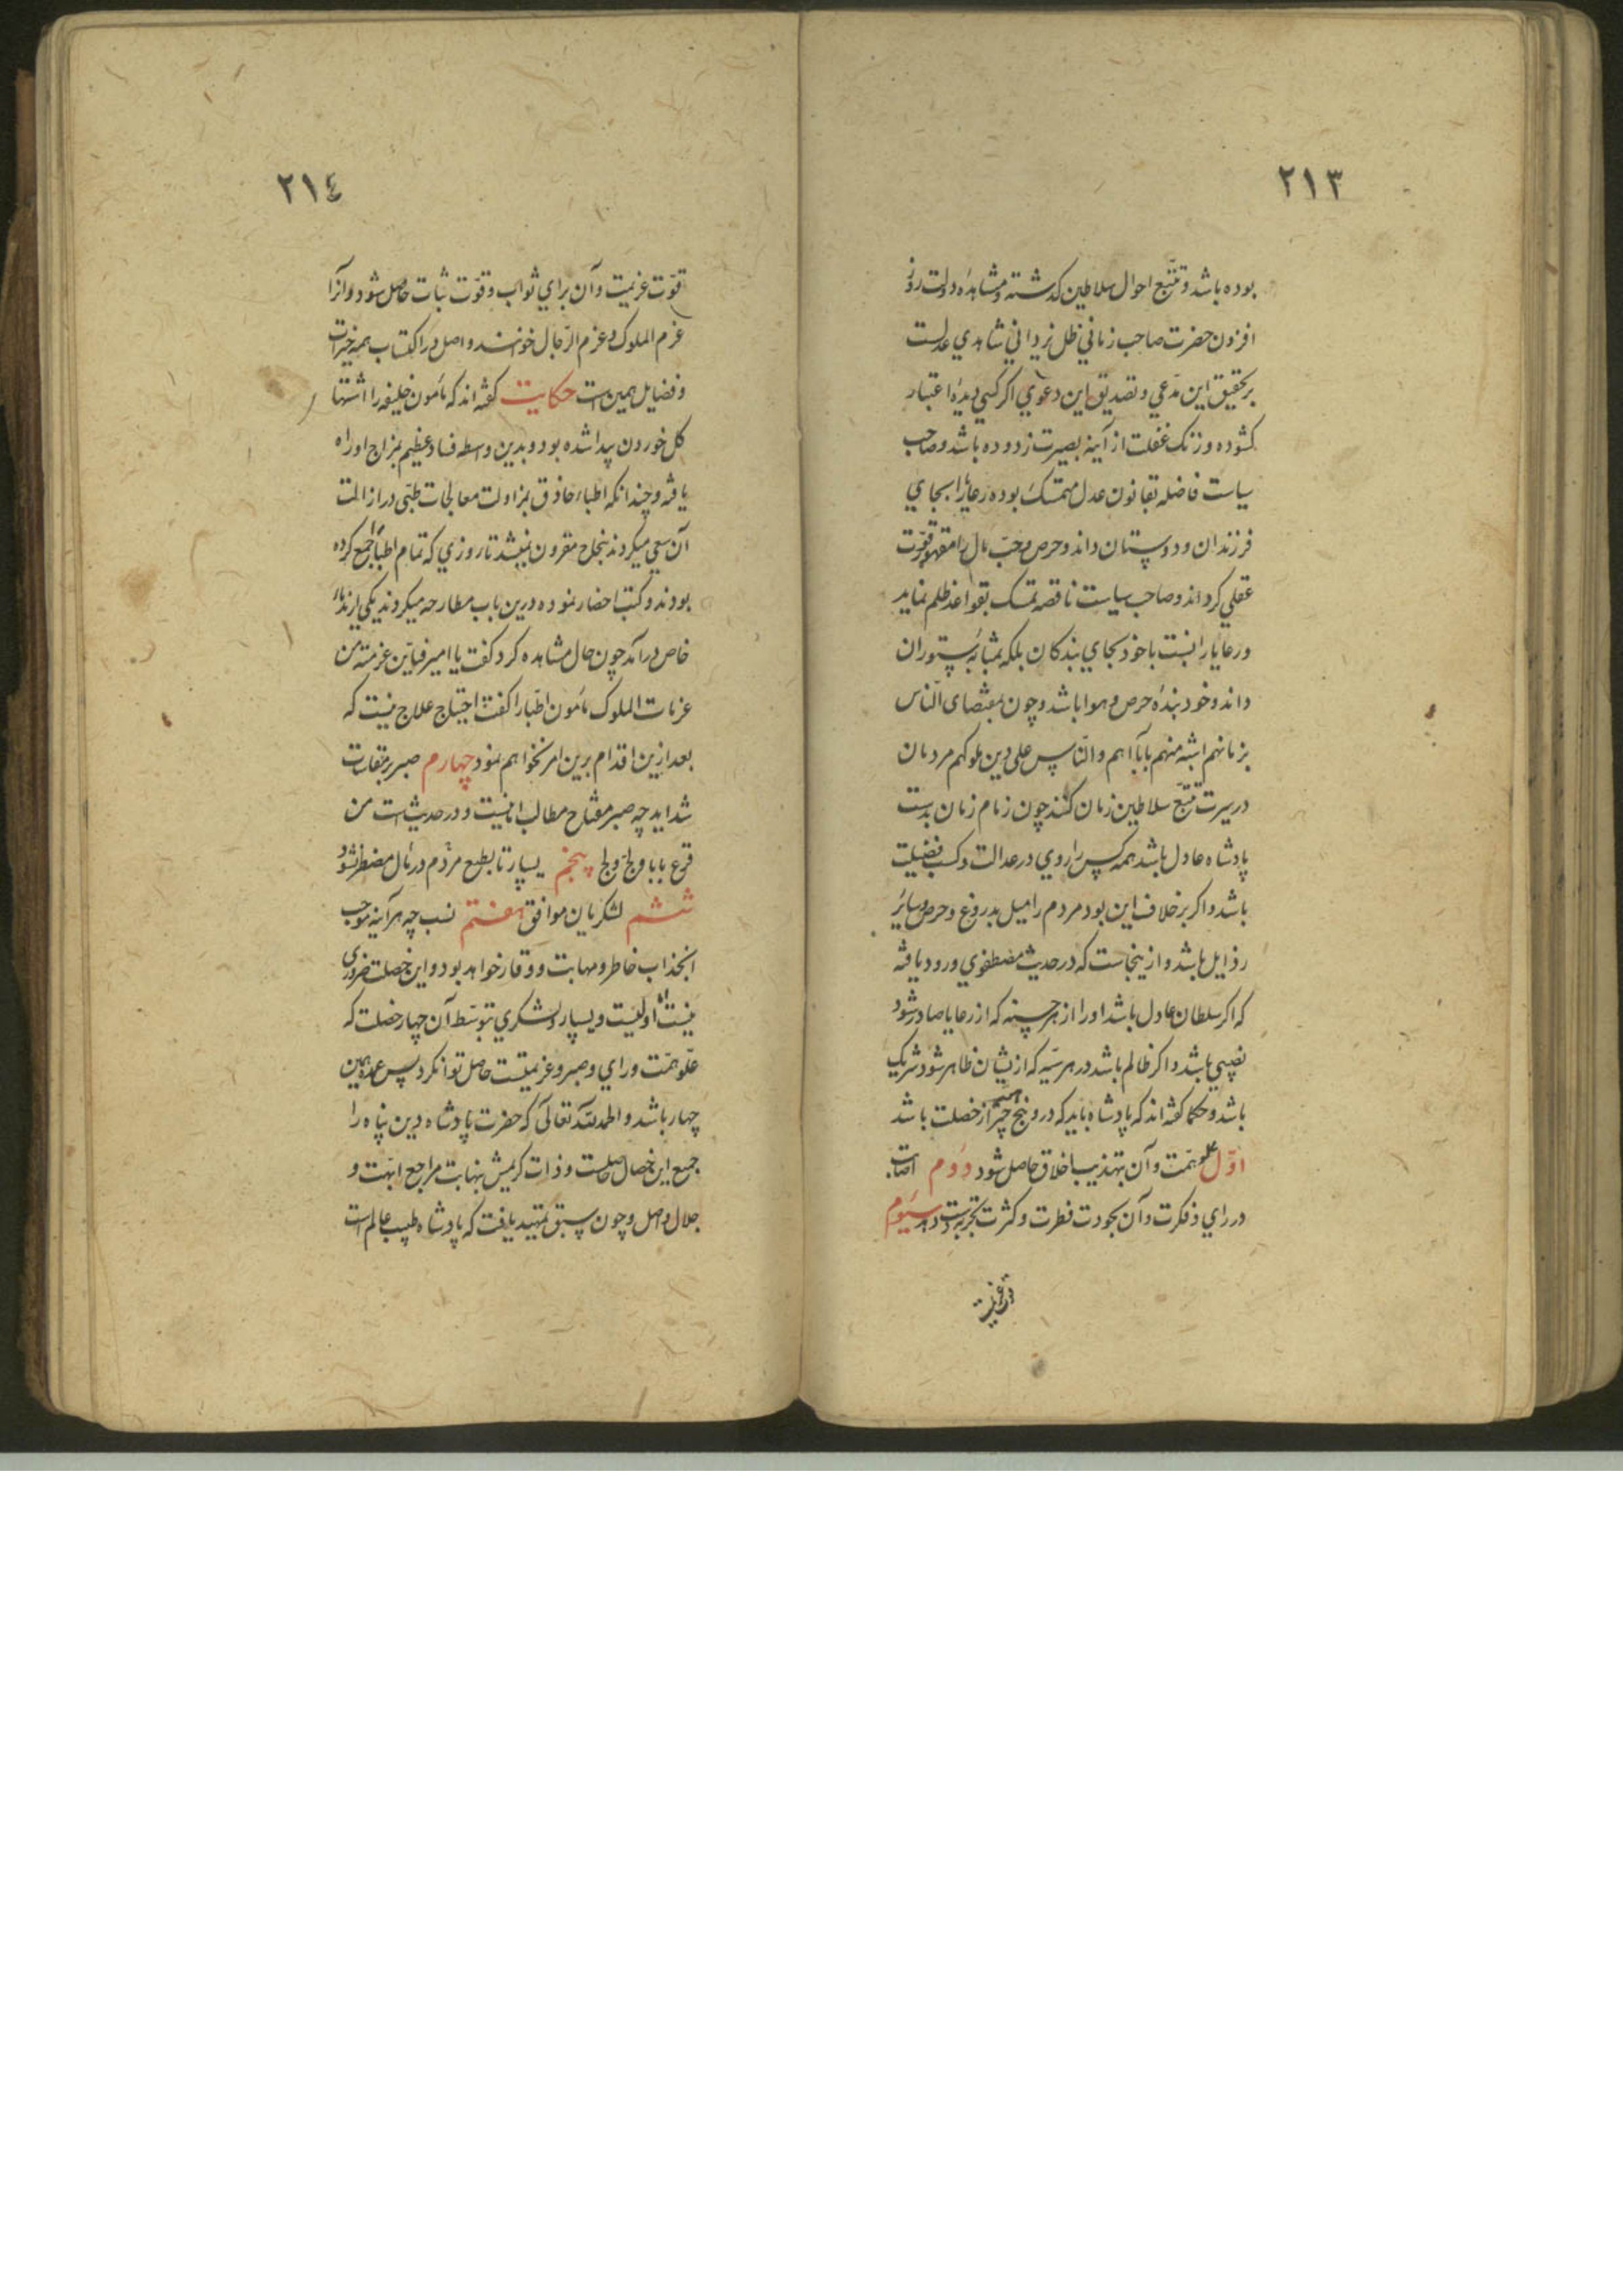 ٢١٣
بوده باشد و تتبع احوال سلاطین گذشته و مشاهدهٔ دولت روز
افزون حضرت صاحب زمانی ظل یزدانی شاهدی عدلست
بر تحقیق این مدعی و تصدیق این دعوی اکر کسی دیدهٔ اعتبار
کشوده و زنک غفلت از آینه بصیرت زدوده باشد و صاحب
سیاست فاضله بقانون عدل متمسک بوده رعایا را بجای
فرزندان و دوستان داند و حرص و حب مال را مقهور قوت
عقلی کرداند و صاحب سیاست ناقصه تمسک بقواعد ظلم نماید
و رعایا را نسبت با خود بجای بندکان بلکه بمثابه ستوران
داند و خود بندهٔ حرص و هوا باشد و چون بمقتضای الناس
بزمانهم اشبه منهم بآبائهم والناس علی دین ملوکهم مردمان
در سیرت تتبع سلاطین زمان کنند چون زمام زمان بدست
پادشاه عادل باشد همه کس را روی در عدالت و کسب فضیلت
باشد و اکر بر خلاف این بود مردم را میل بدروغ و حرص و سایر
رذایل باشد و ازینجاست که در حدیث مصطفوی ورود یافته
که اکر سلطان عادل باشد او را از هر حسنه که از رعایا صادر شود
نصیبی باشد و اکر ظالم باشد در هر سیّه که ازیشان ظاهر شود شریک
باشد و حکما کفته اند که پادشاه باید که درو پنج چیز از خصلت باشد
اوّل علو همّت و آن بتهذیب اخلاق حاصل شود دوم اصابت
در رای و فکرت و آن بجودت فطرت و کثرت تجربت دست دهد سیوم
قوت عزیمت
٢١٤
قوّت عزیمت و آن برای ثواب و قوّت ثبات حاصل شود و آنرا
عزم الملوک و عزم الرّجال خوانند و اصل در اکتساب همه خیرات
و فضایل همین است حکایت کفته اند که مأمون خلیفه را اشتها
کل خوردن پیدا شده بود و بدین واسطه فساد عظیم بمزاج او راه
یافته و چندانکه اطباء حاذق بمزاولت معالجات طبّی در ازالت
آن سعی میکردند بنجاح مقرون نمیشد تا روزی که تمام اطبا را جمع کرده
بودند و کتب احضار نموده درین باب مطارحه میکردند یکی از ندماء
خاص درآمد چون حال مشاهده کرد کفت یا امیر فاین عزمة من
عزمات الملوک مأمون اطبا را کفت احتیاج علاج نیست که
بعد ازین اقدام برین امر نخواهم نمود چهارم صبر بر مقاسات
شداید چه صبر مفتاح مطالب امانیست و در حدیث است من
قرع بابا ولجّ ولج پنجم یسار تا بطمع مردم در مال مضطر نشود
ششم لشکریان موافق هفتم نسب چه هر آینه موجب
انجذاب خاطر و مهابت و وقار خواهد بود و این خصلت ضروری
نیست امّا اولیست و یسار و لشکری بتوسّط آن چهار خصلت که
علّو همّت و رای و صبر و عزیمتست حاصل توانکرد پس عمده همین
چهار باشد و الحمد لله تعالی که حضرت پادشاه دین پناه را
جمیع این خصال حاصلست و ذات کریمش بنهایت مراجع ابهّت و
جلال واصل و چون سبق تمهید یافت که پادشاه طبیب عالم است